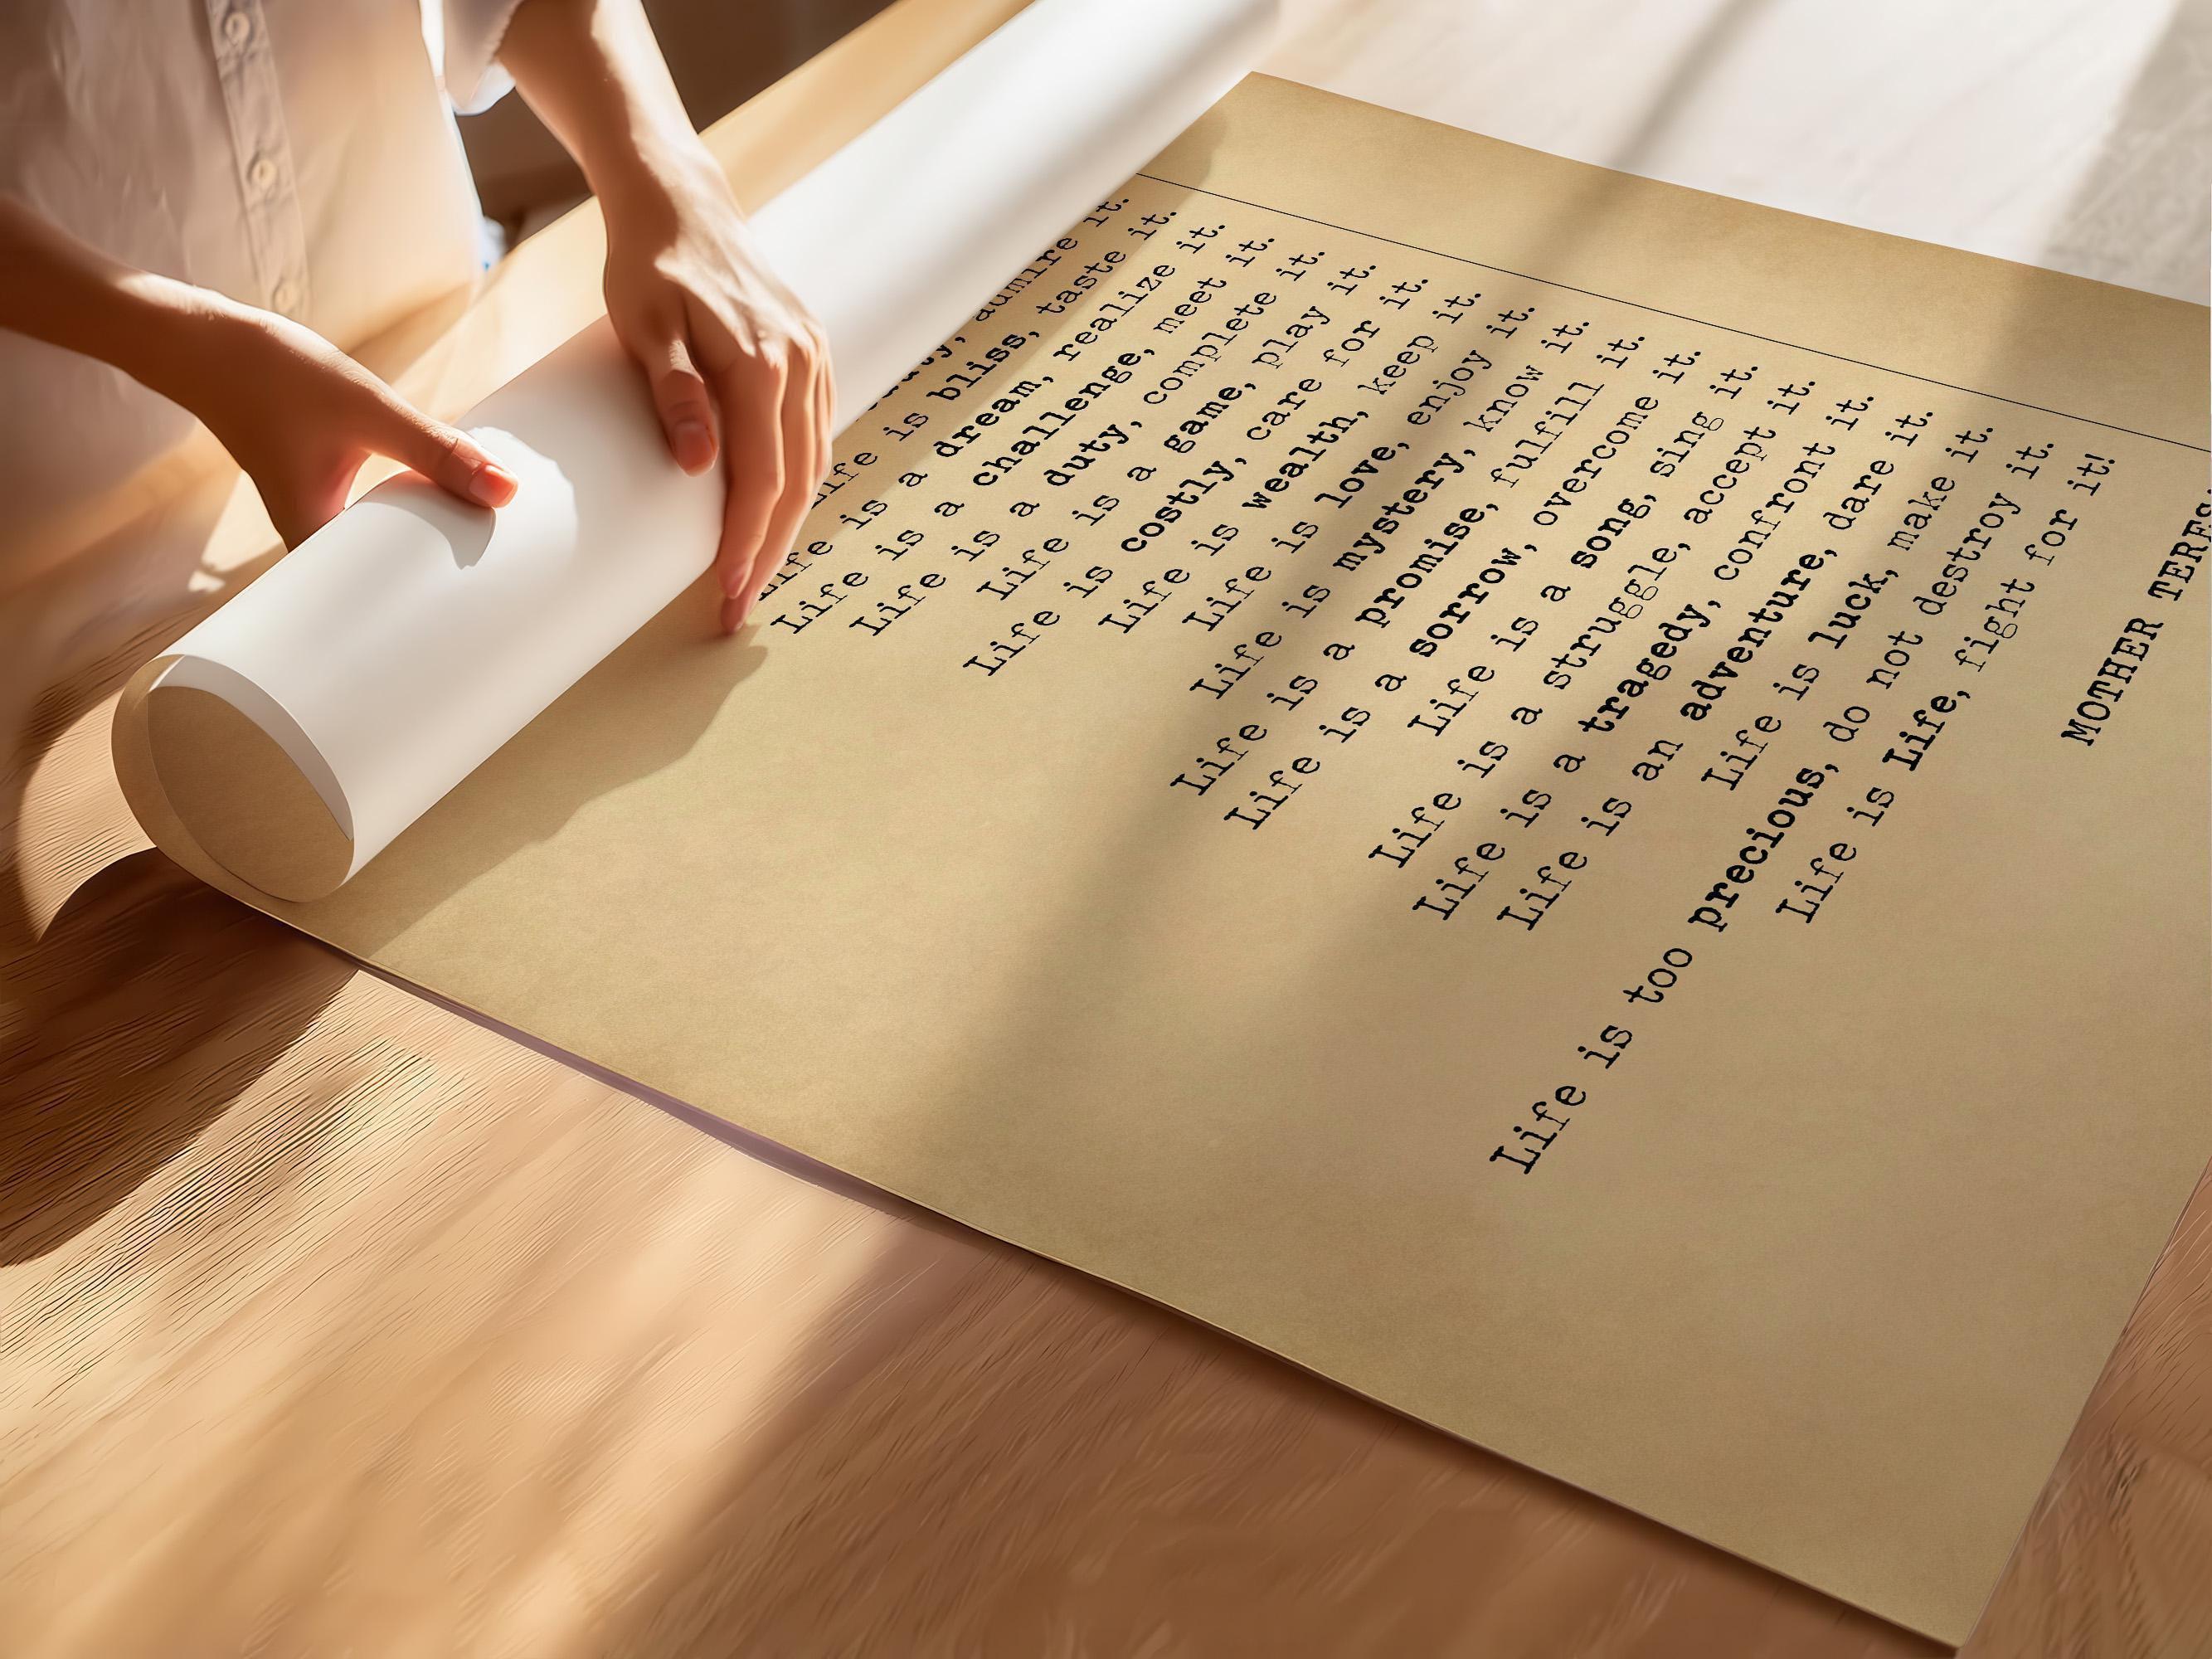 admire it.
Life is bliss, taste it.
Life is a dream, realize it.
Life is a challenge, meet it.
Life is a duty, complete it.
Life is a game, play it.
Life is costly, care for it.
Life is wealth, keep it.
Life is love, enjoy it.
Life is mystery, know it.
Life is a promise, fulfill it.
Life is a sorrow, overcome it.
Life is a song, sing it.
Life is a struggle, accept it.
Life is a tragedy, confront it.
Life is an adventure, dare it.
Life is luck, make it.
Life is too precious, do not destroy it.
Life is Life, fight for it!
MOTHER